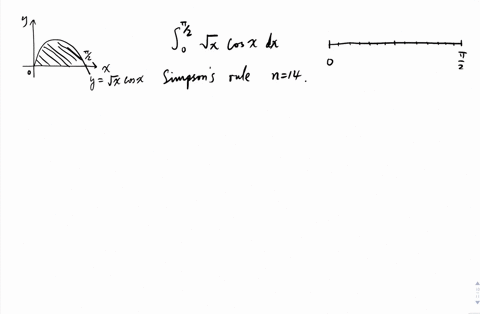 y
π/2
0
x
y = √x cos x
∫₀^{π/2} √x cos x dx
Simpson's rule n=14.
0
π/2